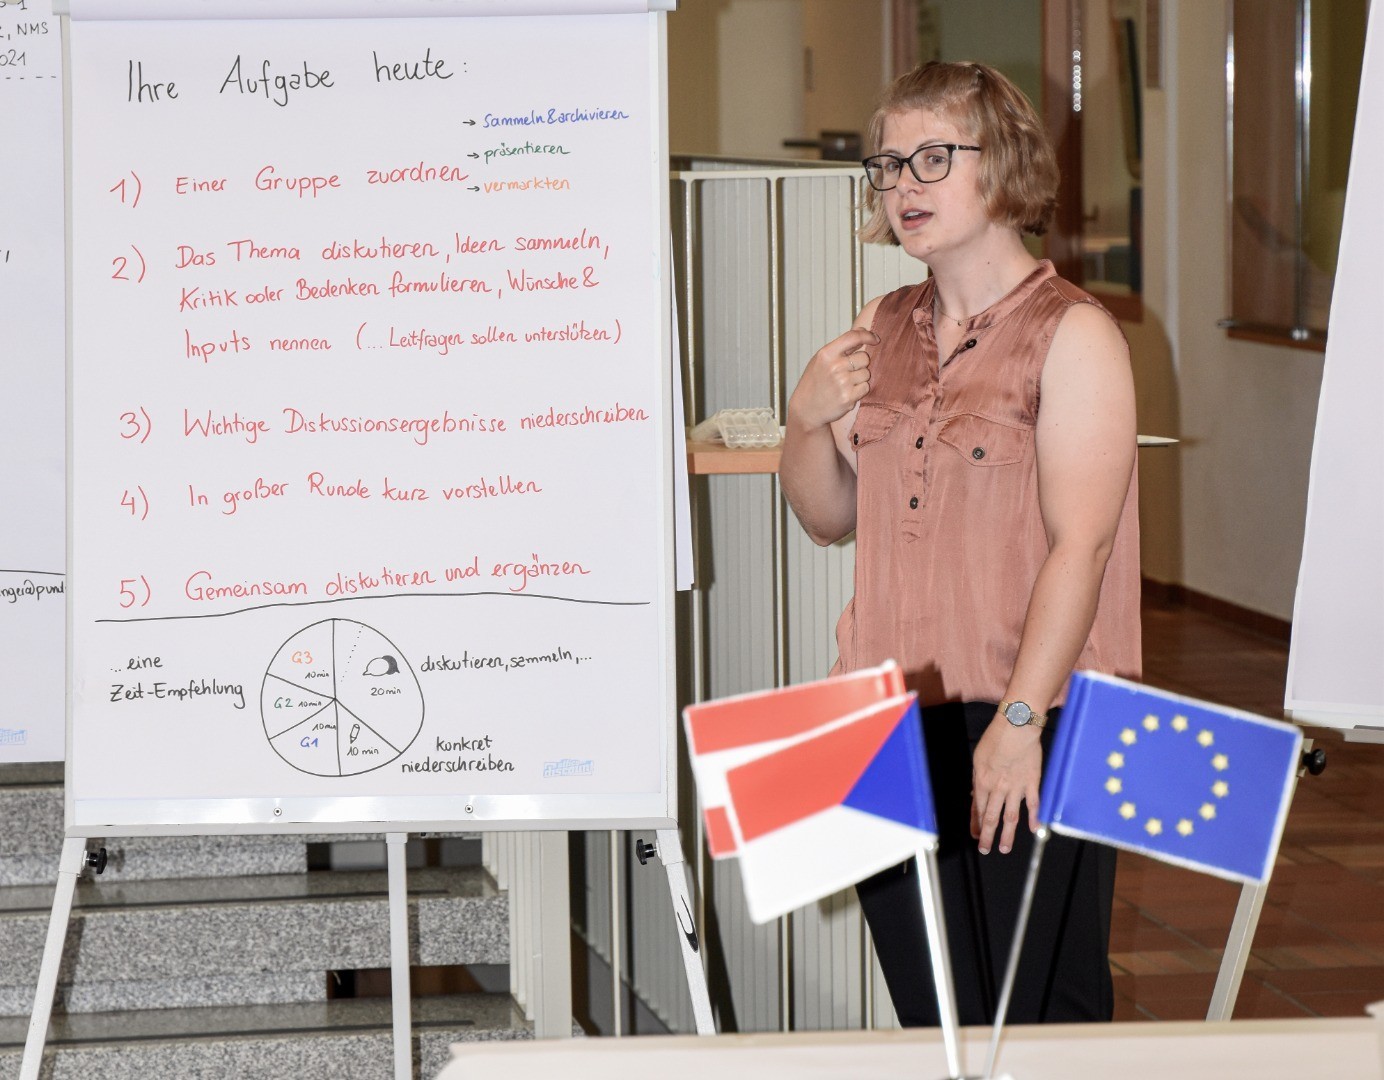 , NMS
021
Ihre Aufgabe heute:
→ Sammeln & archivieren
→ präsentieren
→ vermarkten
1) Einer Gruppe zuordnen
2) Das Thema diskutieren, Ideen sammeln,
Kritik oder Bedenken formulieren, Wünsche &
Inputs nennen (... Leitfragen sollen unterstützen)
3) Wichtige Diskussionsergebnisse niederschreiben
4) In großer Runde kurz vorstellen
5) Gemeinsam diskutieren und ergänzen
... eine
Zeit-Empfehlung
G3
10min
G2 10min
10min
G1
20min
10 min
diskutieren, sammeln,...
konkret
niederschreiben
discount